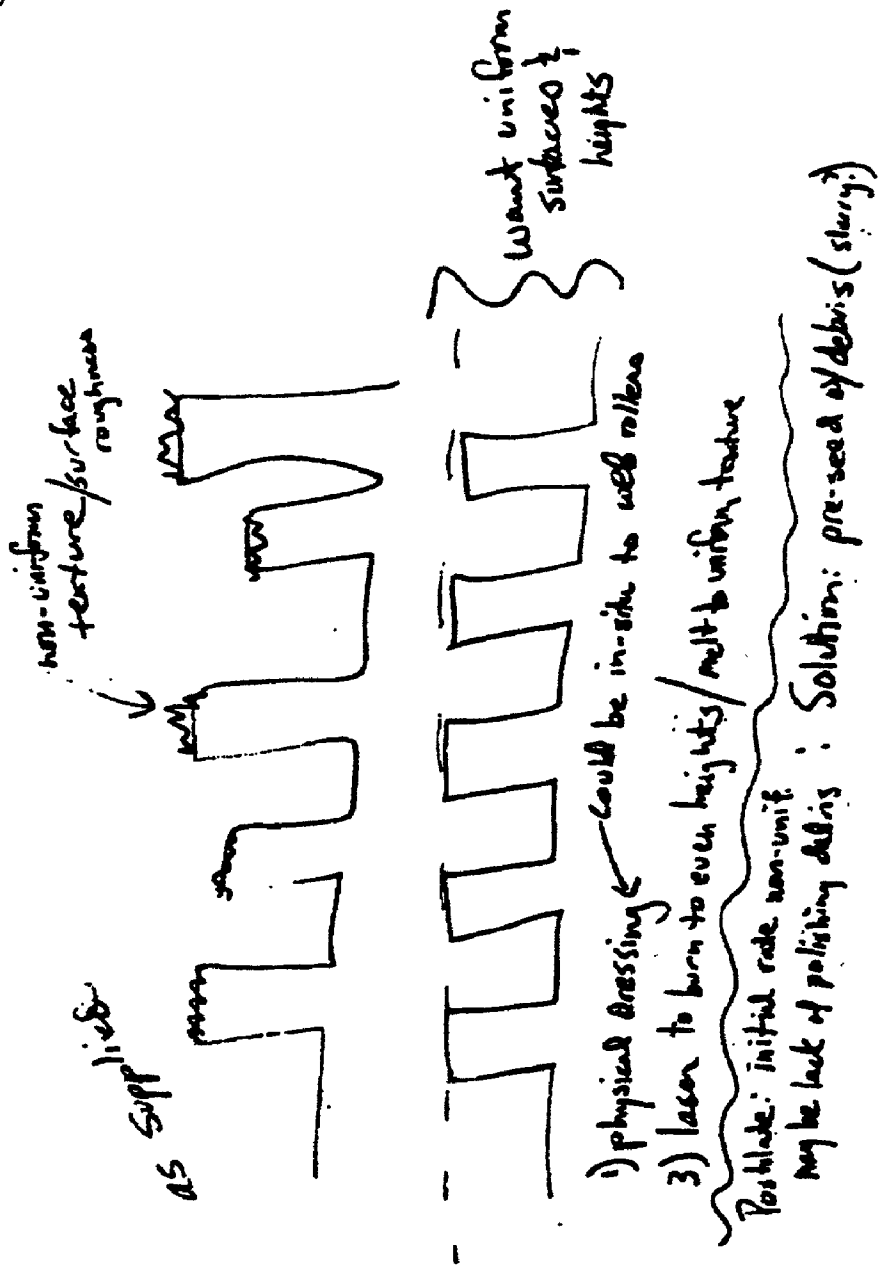 as supplied
non-uniform
texture/surface
roughness
want uniform
surfaces &
heights
1) physical dressing
could be in-situ to web rollers
3) laser to burn to even heights/melt to uniform texture
Postulate: initial rate non-unif.
may be lack of polishing debris : Solution: pre-seed w/debris (slurry?)